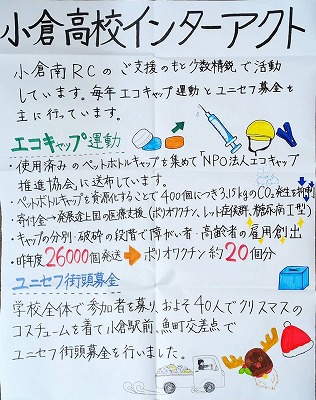 小倉高校インターアクト
小倉南RCのご支援のもと少数精鋭で活動
しています。毎年エコキャップ運動とユニセフ募金を
主に行っています。
エコキャップ運動
・使用済みのペットボトルキャップを集めて「NPO法人エコキャップ
推進協会」に送布しています。
・ペットボトルキャップを資源化することで400個につき3.15kgのCO₂発生を抑制
・寄付金→発展途上国の医療支援(ポリオワクチン、レット症候群、糖尿病I型)
・キャップの分別・破砕の段階で障がい者・高齢者の雇用創出
・昨年度26000個発送➡ポリオワクチン約20個分
ユニセフ街頭募金
学校全体で参加者を募り、およそ40人でクリスマスの
コスチュームを着て小倉駅前、魚町交差点で
ユニセフ街頭募金を行いました。